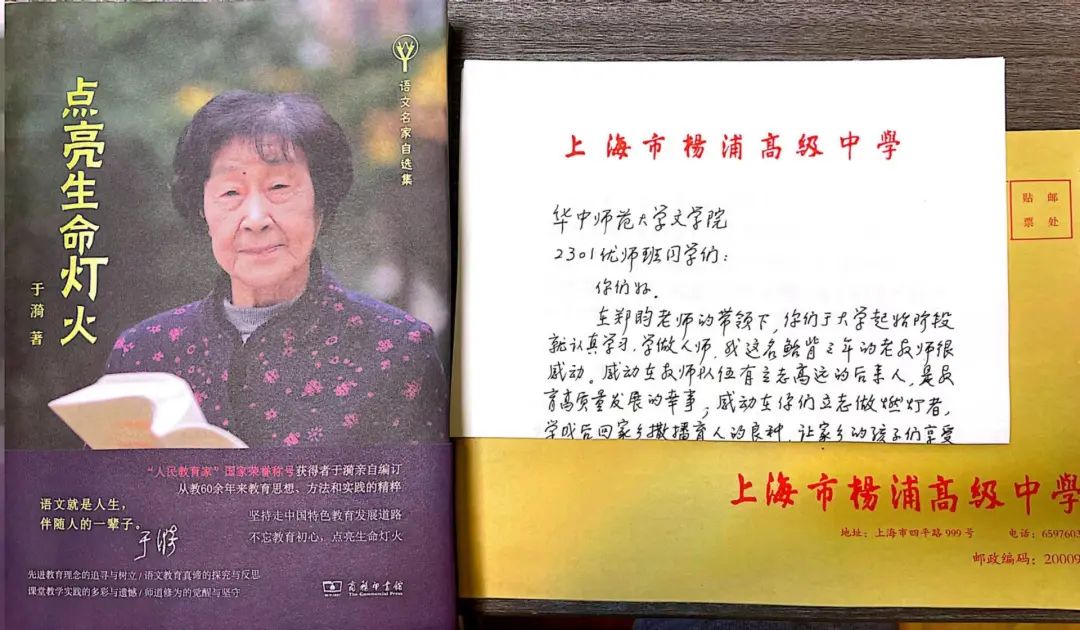 语文名家自选集
点亮生命灯火
于漪 著
“人民教育家”国家荣誉称号获得者于漪亲自编订
从教60余年来教育思想、方法和实践的精粹
语文就是人生，
伴随人的一辈子。
于漪
坚持走中国特色教育发展道路
不忘教育初心，点亮生命灯火
先进教育理念的追寻与树立/语文教育真谛的探究与反思
课堂教学实践的多彩与遗憾/师道修为的觉醒与坚守
商务印书馆
The Commercial Press
上海市楊浦高級中學
华中师范大学文学院
2301优师班同学们：
你们好。
在郑昀老师的带领下，你们于大学起始阶段
就认真学习，学做人师，我这名鲐背之年的老教师很
感动。感动在教师队伍有立志高远的后来人，是教
育高质量发展的幸事；感动在你们立志做燃灯者，
学成后回家乡撒播育人的良种，让家乡的孩子们享受
贴邮
票处
上海市楊浦高級中學
地址：上海市四平路999号 电话：6597603
邮政编码：20009